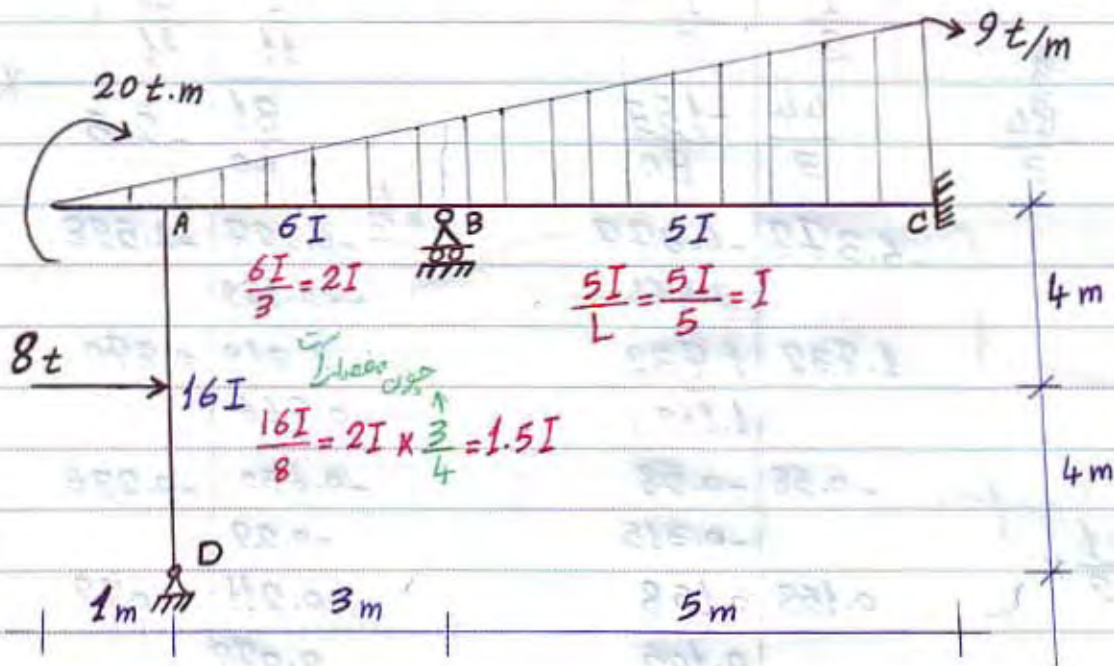 9 t/m
20 t.m
A 6I B 5I C
6I/3 = 2I
5I/L = 5I/5 = I
4 m
8 t
16I
چون مفصل است
16I/8 = 2I × 3/4 = 1.5I
4 m
D
1 m 3 m 5 m